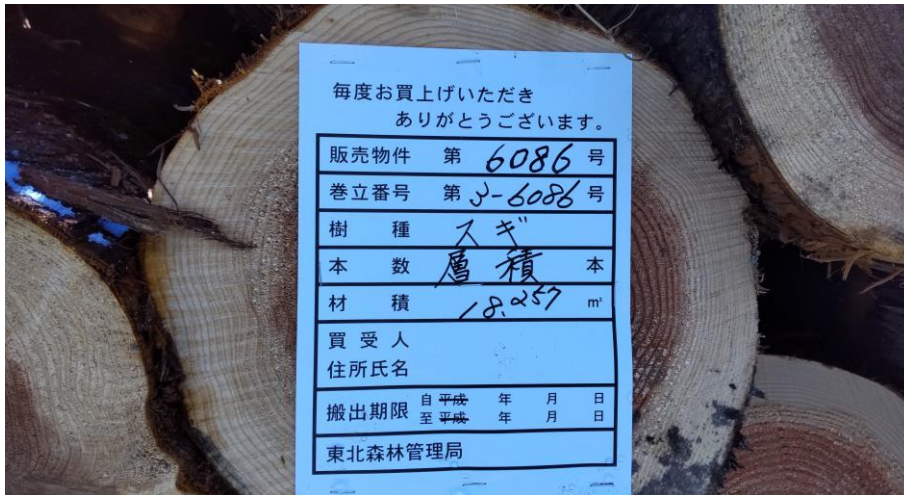 毎度お買上げいただき
ありがとうございます。
販売物件 第 6086 号
巻立番号 第 3-6086 号
樹種 スギ
本数 層積 本
材積 18.257 m³
買受人
住所氏名
搬出期限 自 平成 年 月 日
至 平成 年 月 日
東北森林管理局